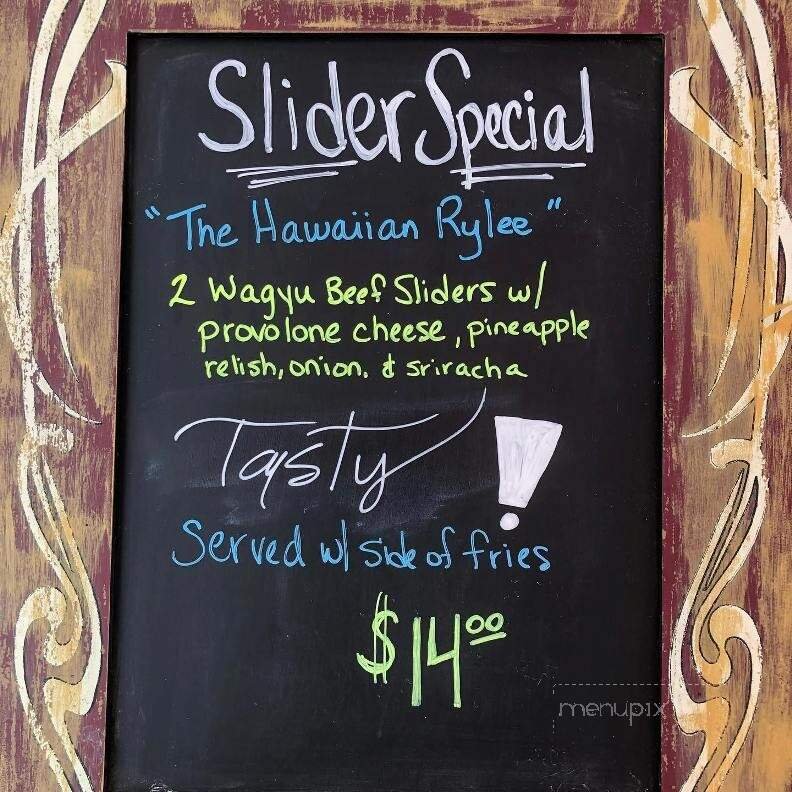 Slider Special
"The Hawaiian Rylee"
2 Wagyu Beef Sliders w/
provolone cheese, pineapple
relish, onion. & sriracha
Tasty!
Served w/ side of fries
$14.00
menupix